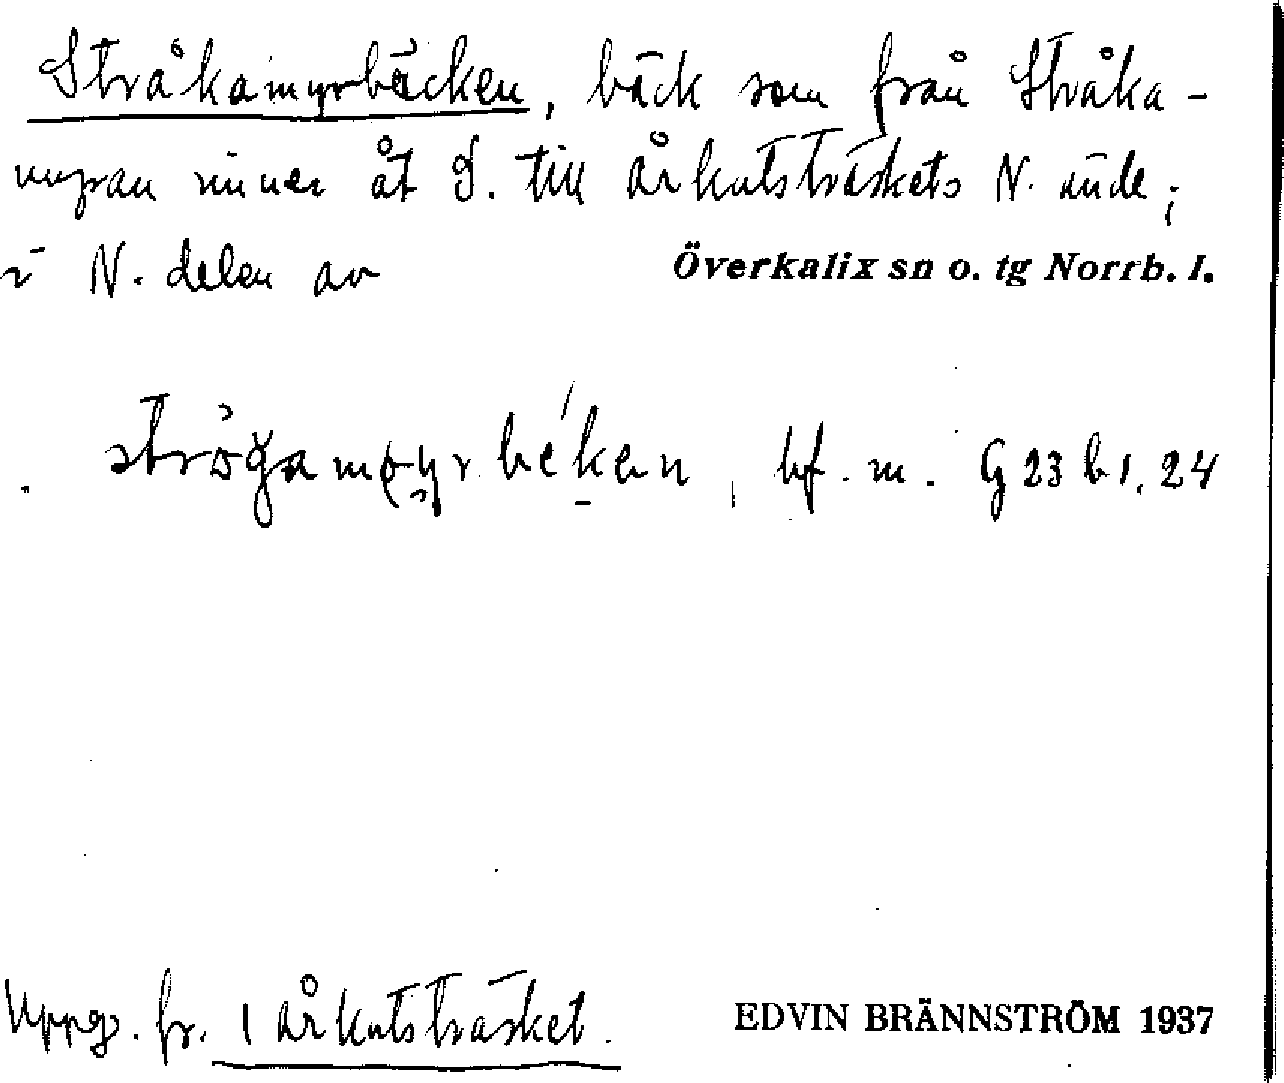 Stråkamyrbäcken, bäck som från Stråka-
myran rinner åt S. till Årkutsträskets N. ände;
i N. delen av Överkalix sn o. tg Norrb. l.
bf. m. G 23 b 1, 24
Uppg. fr. 1 Årkutsträsket. EDVIN BRÄNNSTRÖM 1937